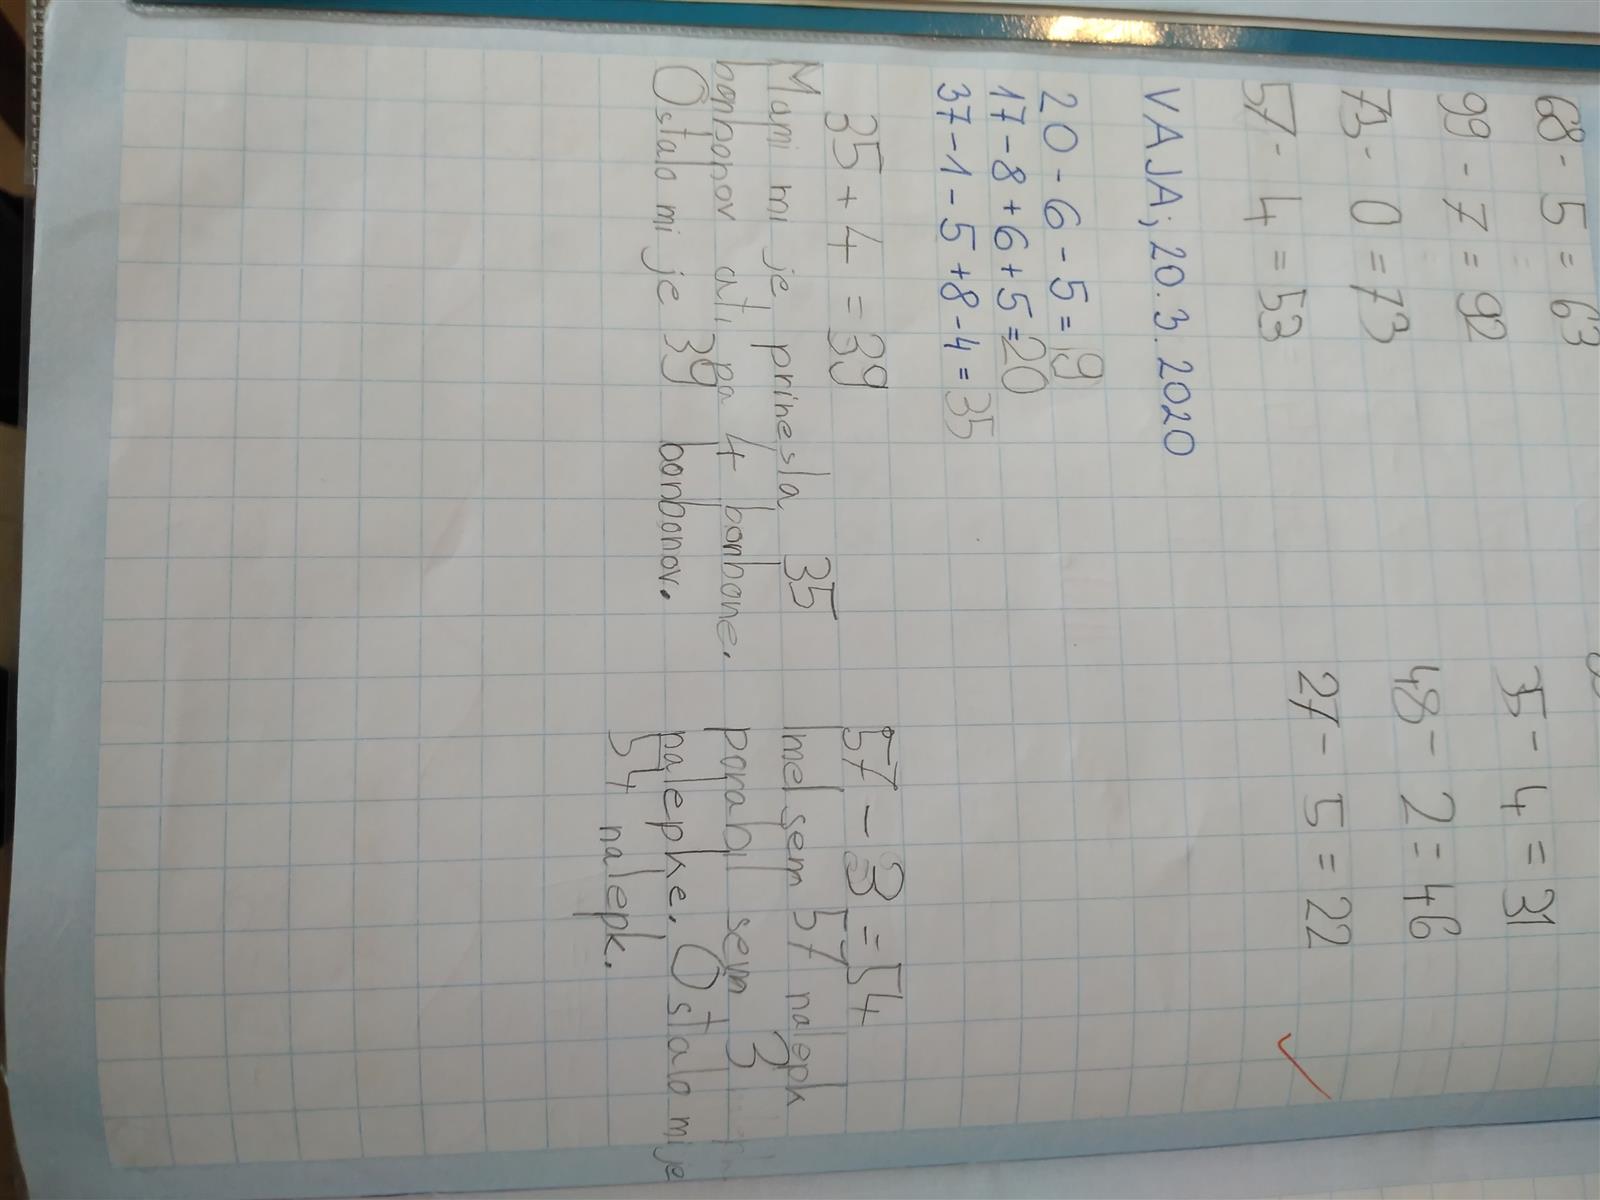 68 - 5 = 63
99 - 7 = 92
73 - 0 = 73
57 - 4 = 53
35 - 4 = 31
48 - 2 = 46
27 - 5 = 22
VAJA; 20.3.2020
20 - 6 - 5 = 19
17 - 8 + 6 + 5 = 20
37 - 1 - 5 + 8 - 4 = 35
35 + 4 = 39
Mami mi je prinesla 35
bonbonov ati pa 4 bonbone.
Ostalo mi je 39 bonbonov.
57 - 3 = 54
Imel sem 57 nalepk
porabil sem 3
nalepke. Ostalo mi je
54 nalepk.